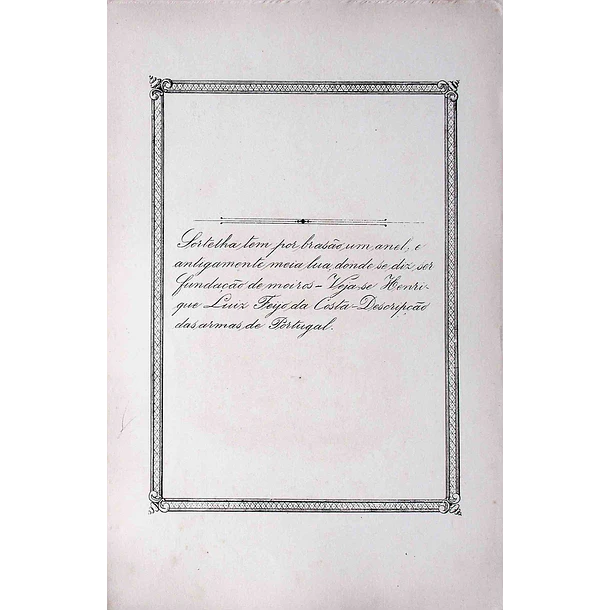 Sortelha tem por brasão um anel, e
antigamente meia lua, donde se diz ser
fundação de moiros - Veja-se Henri-
que Luiz Feijo da Costa - Descripção
das armas de Portugal.